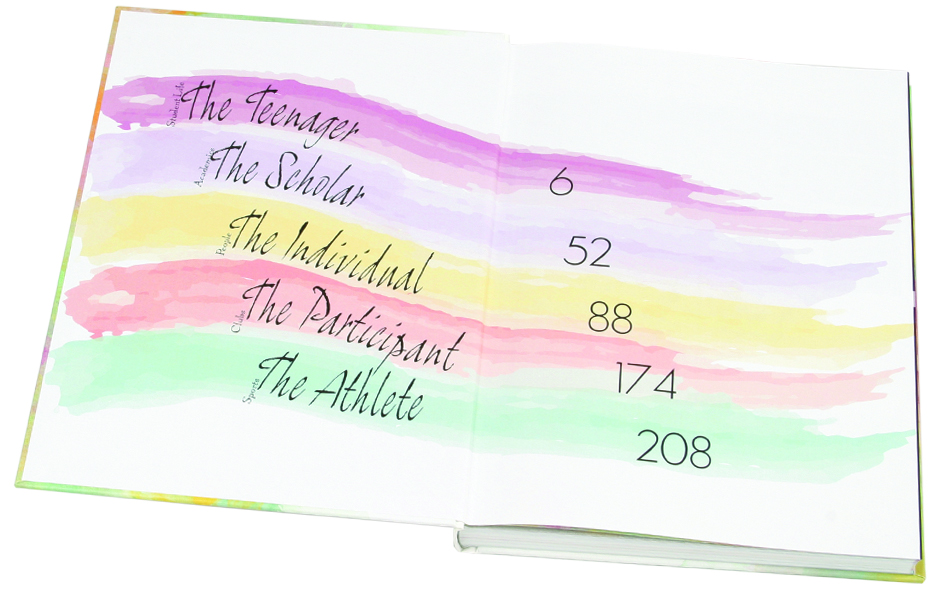 Student Life The Teenager 6
Academics The Scholar 52
People The Individual 88
Clubs The Participant 174
Sports The Athlete 208